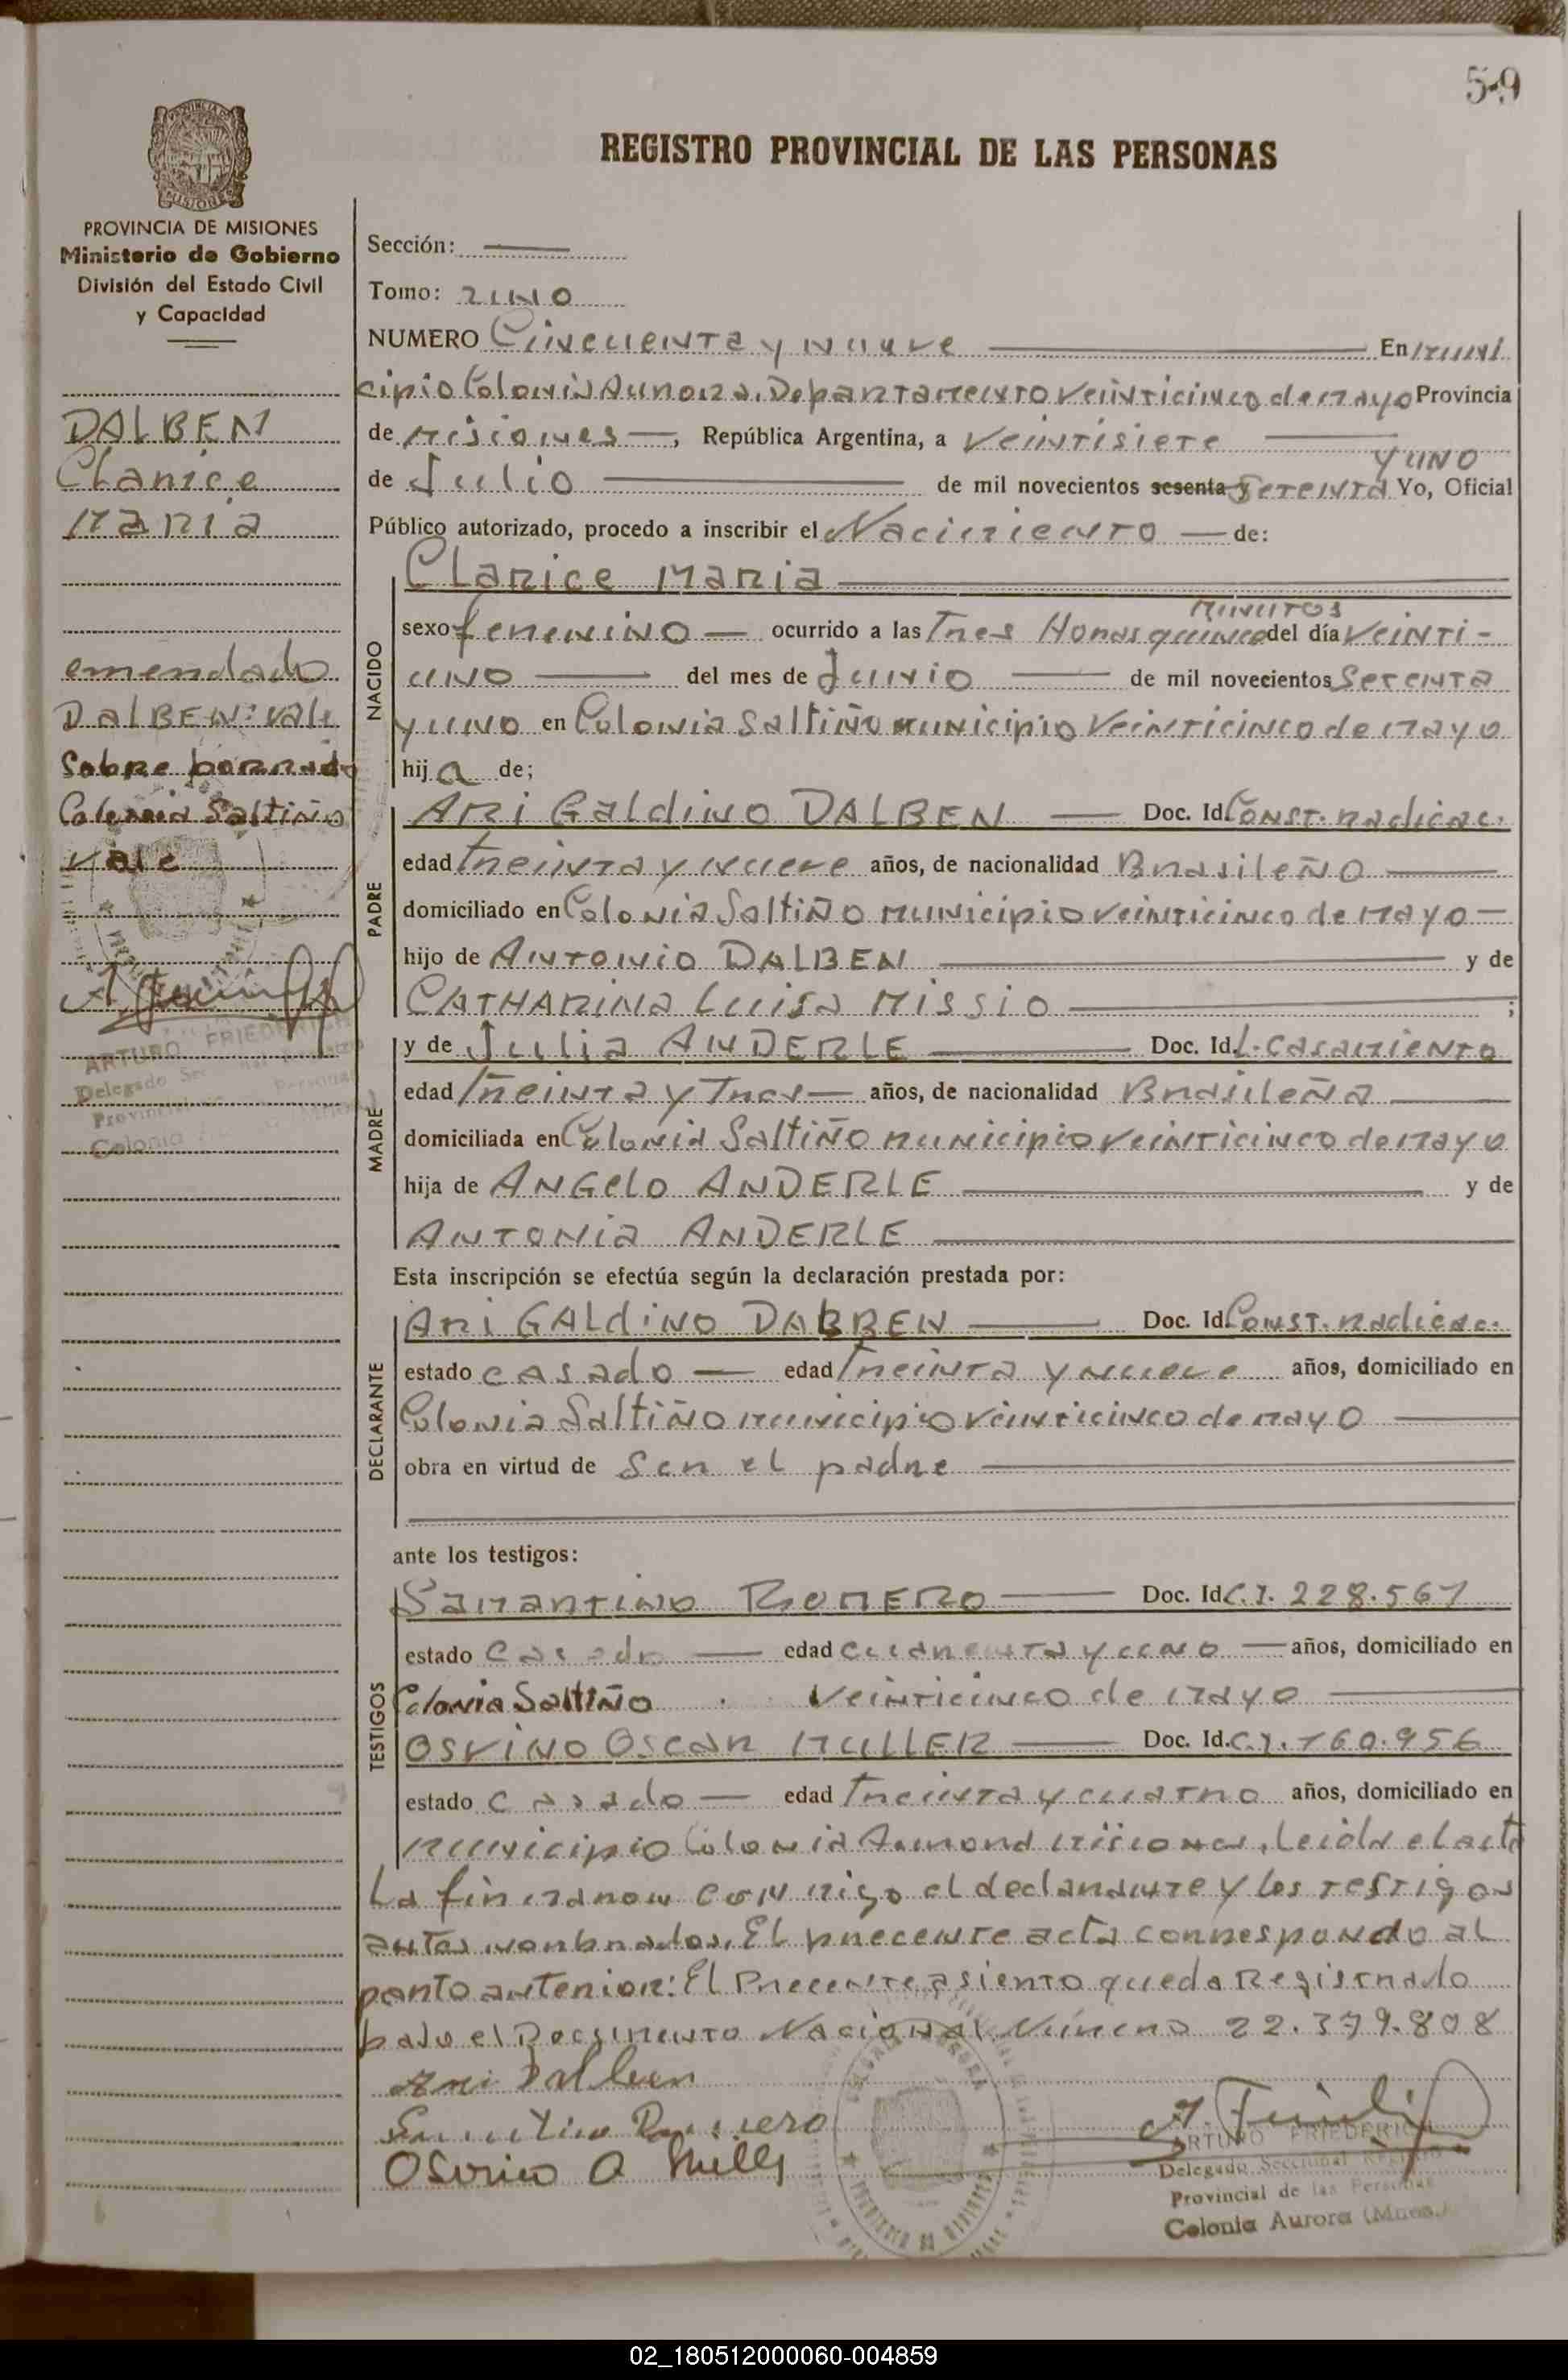 59
REGISTRO PROVINCIAL DE LAS PERSONAS
PROVINCIA DE MISIONES
Ministerio de Gobierno
División del Estado Civil
y Capacidad
DALBEN
Clarice
Maria
emendado
DalBEN: vale
Sobre borrado
Colonia Saltiño
vale
ARTURO FRIEDERICH
Delegado
Provincial
Colonia
Sección:
Tomo: uno
NUMERO Cincuenta y nueve En Muni
cipio Colonia Aurora. Departamento Veinticinco de Mayo Provincia
de Misiones, República Argentina, a Veintisiete
y uno
de Julio de mil novecientos sesenta y Setenta Yo, Oficial
Público autorizado, procedo a inscribir el Nacimiento de:
Clarice Maria
minutos
sexo femenino ocurrido a las Tres Horas quince del día Veinti-
uno del mes de Junio de mil novecientos Setenta
y uno en Colonia Saltiño municipio Veinticinco de Mayo
hija de;
NACIDO
Ari Galdino DALBEN Doc. Id. Const. radicac.
edad Treinta y nueve años, de nacionalidad Brasileño
domiciliado en Colonia Saltiño municipio Veinticinco de Mayo
hijo de Antonio DALBEN y de
CATHARINA Luisa Missio ;
PADRE
y de Julia ANDERLE Doc. Id. L. Casamiento
edad Treinta y Tres años, de nacionalidad Brasileña
domiciliada en Colonia Saltiño municipio Veinticinco de Mayo
hija de ANGelo ANDERLE y de
ANTONia ANDERLE
MADRE
Esta inscripción se efectúa según la declaración prestada por:
Ari GALdiNO DALBEN Doc. Id. Const. radicac.
estado casado edad Treinta y nueve años, domiciliado en
Colonia Saltiño municipio Veinticinco de Mayo
obra en virtud de Ser el padre
DECLARANTE
ante los testigos:
Samartino ROMERO Doc. Id. C.I. 228.567
estado Casado edad cuarenta y uno años, domiciliado en
Colonia Saltiño Veinticinco de Mayo
OSVINO Oscar MULLER Doc. Id. C.I. 160.956
estado casado edad Treinta y cuatro años, domiciliado en
municipio Colonia Aurora Misiones. Leida el acta
TESTIGOS
La firmaron con migo el declarante y los testigos
antes nombrados. El precente acta correspondo al
parto anterior: El Precente asiento queda Registrado
bajo el Documento Nacional Número 22.379.808
Ari Dalben
Romero
Osvino O Mull
ARTURO FRIEDERICH
Delegado Seccional Registro
Provincial de las Personas
Colonia Aurora (Mnes.)
02_180512000060-004859